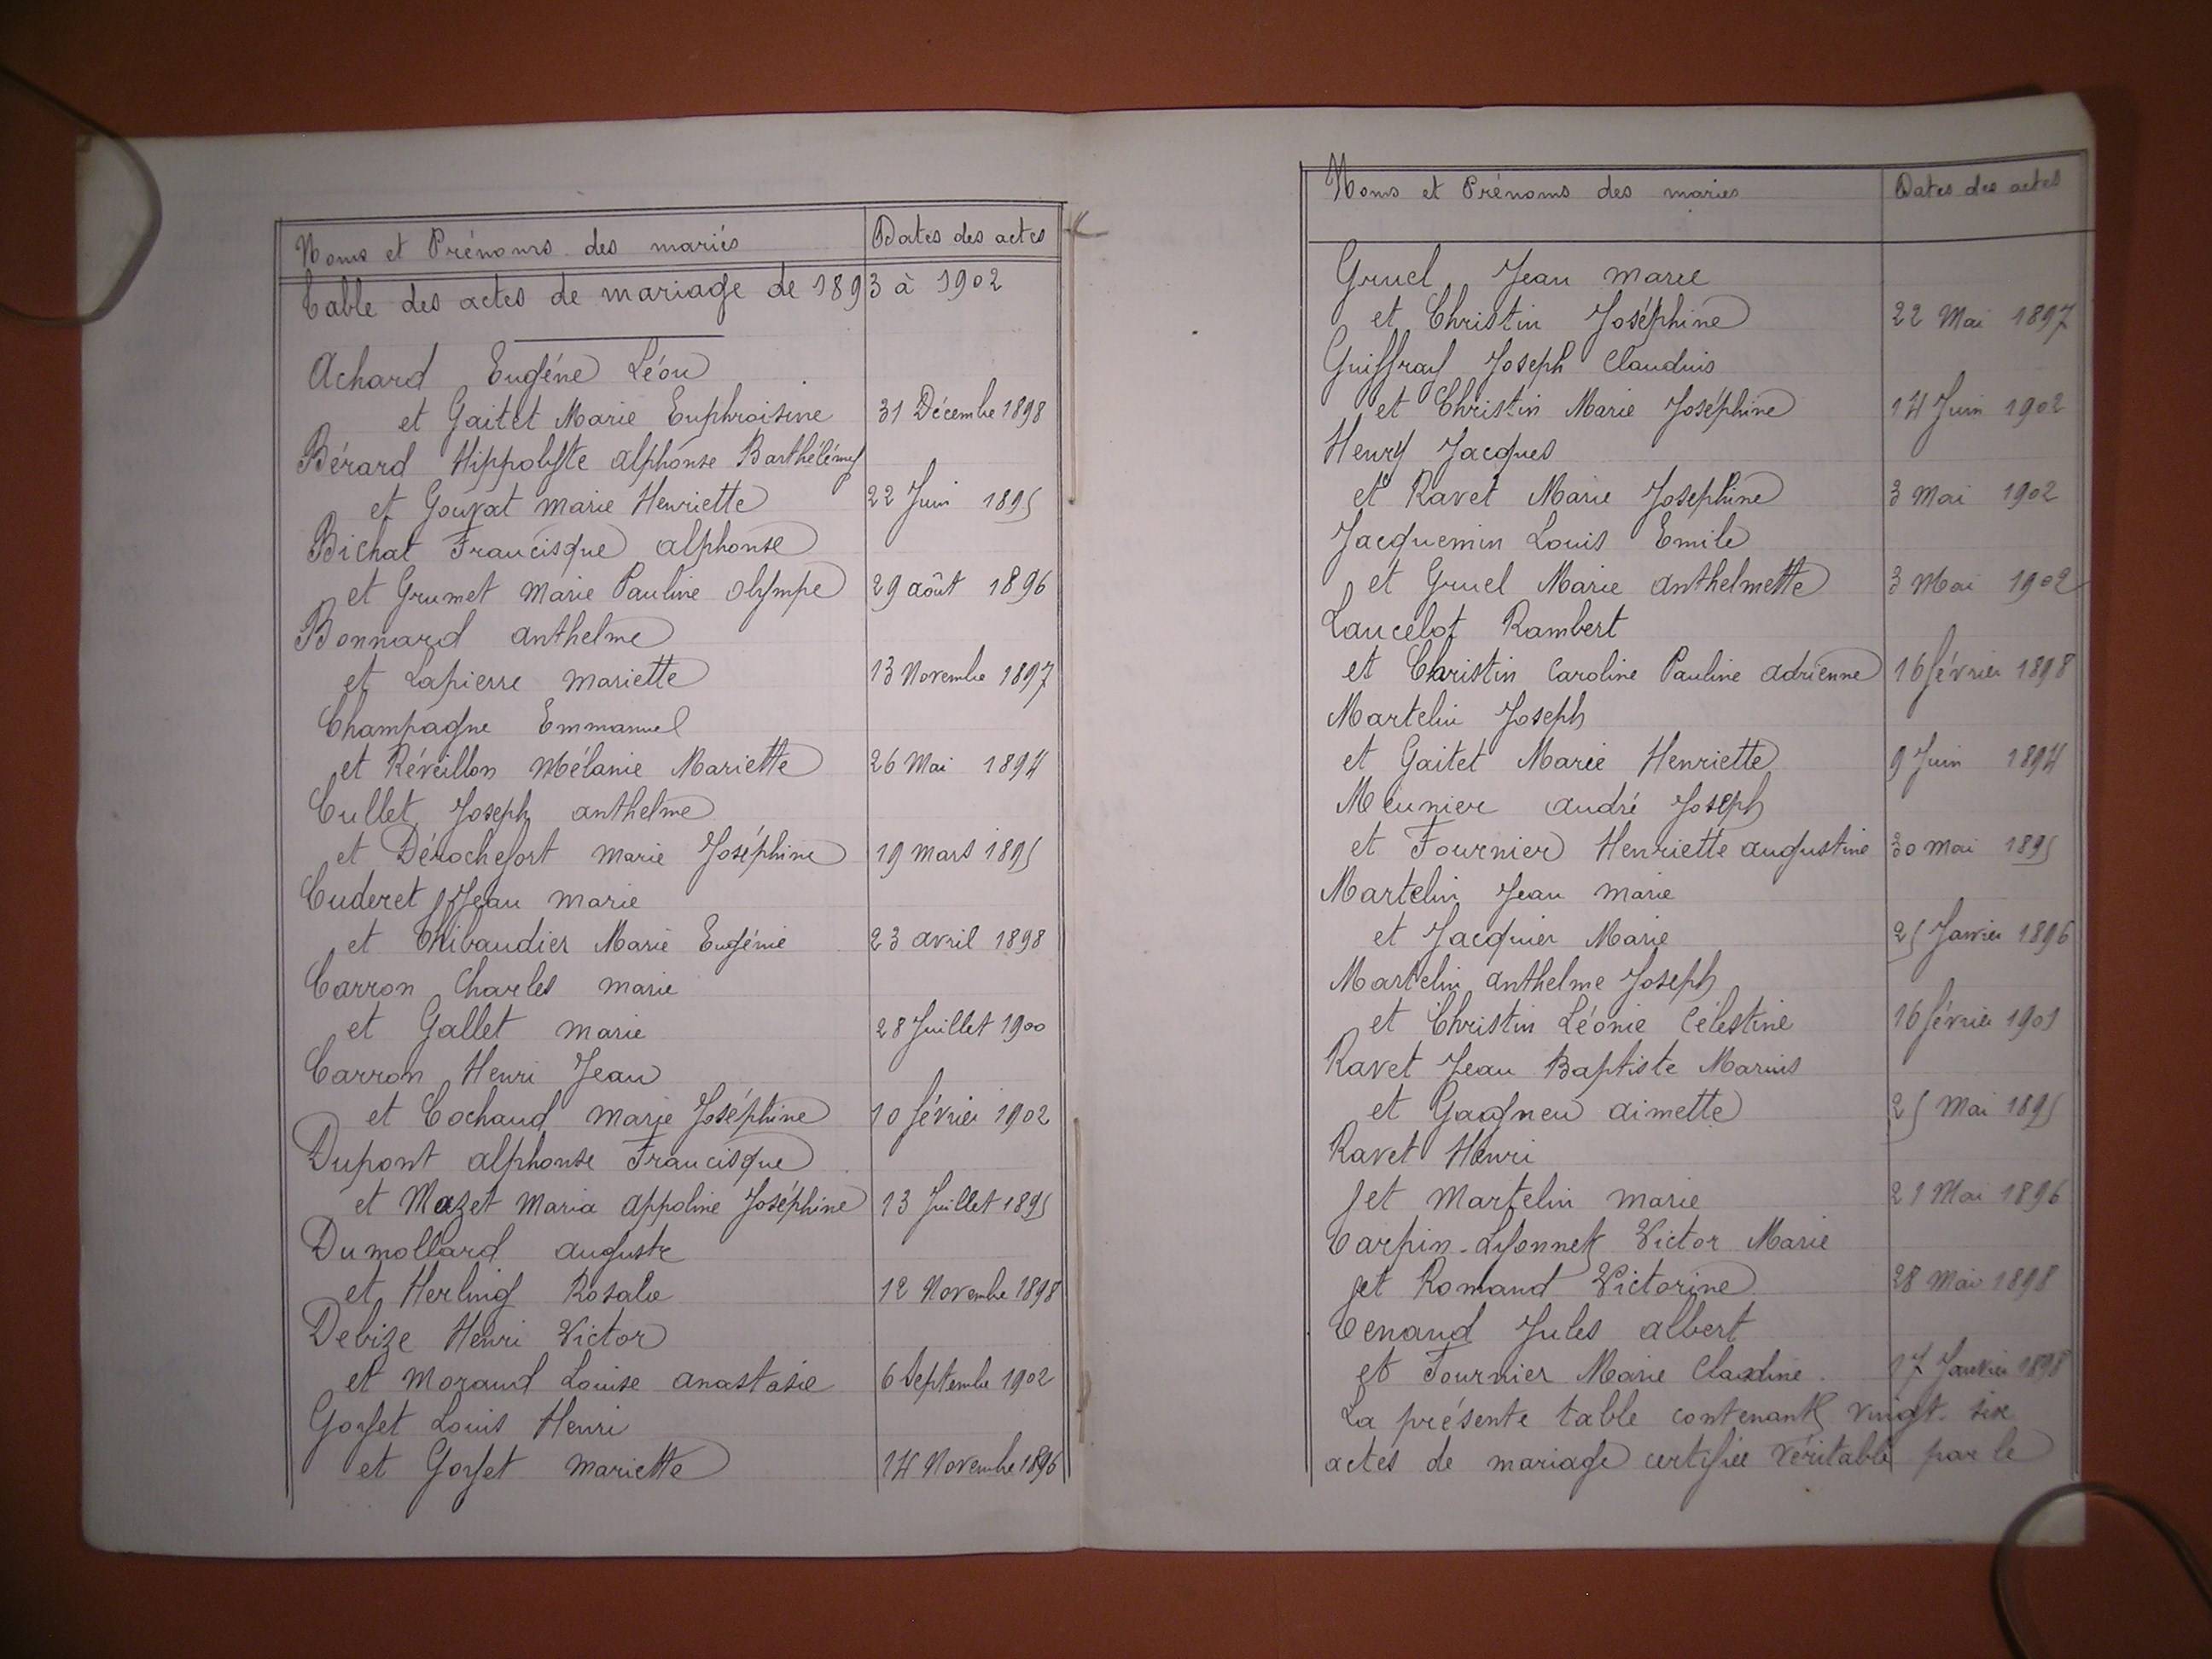 Noms et Prénoms des mariés Dates des actes
Table des actes de mariage de 1893 à 1902
Achard Eugéne Léon
et Gaitet Marie Euphroisine 31 Décembre 1898
Bérard Hippolyte alphonse Barthélémy
et Goyat marie Henriette 22 Juin 1895
Bichat Francisque alphonse
et Grumet Marie Pauline olympe 29 août 1896
Bonnard anthelme
et Lapierre mariette 13 Novembre 1897
Champagne Emmanuel
et Réveillon Mélanie Mariette 26 Mai 1894
Cullet Joseph anthelme
et Dérochefort marie Joséphine 19 mars 1895
Cuderet Jean marie
et Thibaudier Marie Eugénie 23 avril 1898
Carron Charles marie
et Gallet marie 28 Juillet 1900
Carron Henri Jean
et Cochaud marie Joséphine 10 février 1902
Dupont alphonse Francisque
et Mazet maria appoline Joséphine 13 Juillet 1895
Dumollard auguste
et Herling Rosalie 12 Novembre 1898
Debize Henri Victor
et Moraud Louise anastasie 6 Septembre 1902
Goyet Louis Henri
et Goyet mariette 14 Novembre 1896
Noms et Prénoms des mariés Dates des actes
Gruel Jean marie
et Christin Joséphine 22 Mai 1897
Guiffray Joseph Claudius
et Christin Marie Joséphine 14 Juin 1902
Henry Jacques
et Ravet Marie Josephine 3 Mai 1902
Jacquemin Louis Emile
et Gruel Marie anthelmette 3 Mai 1902
Lancelot Rambert
et Christin Caroline Pauline adrienne 16 février 1898
Martelin Joseph
et Gaitet Marie Henriette 9 Juin 1894
Meunier andré Joseph
et Fournier Henriette augustine 30 mai 1895
Martelin Jean marie
et Jacquier Marie 25 Janvier 1896
Martelin anthelme Joseph
et Christin Léonie Célestine 16 février 1901
Ravet Jean Baptiste Marius
et Gagneu aimette 25 Mai 1895
Ravet Henri
et Martelin marie 21 Mai 1896
Carpin-Lyonnet Victor Marie
et Romand Victorine 28 Mai 1898
Tenand Jules albert
et Fournier Marie Claudine 17 Janvier 1898
La présente table contenant vingt-six
actes de mariage certifiée véritable par le